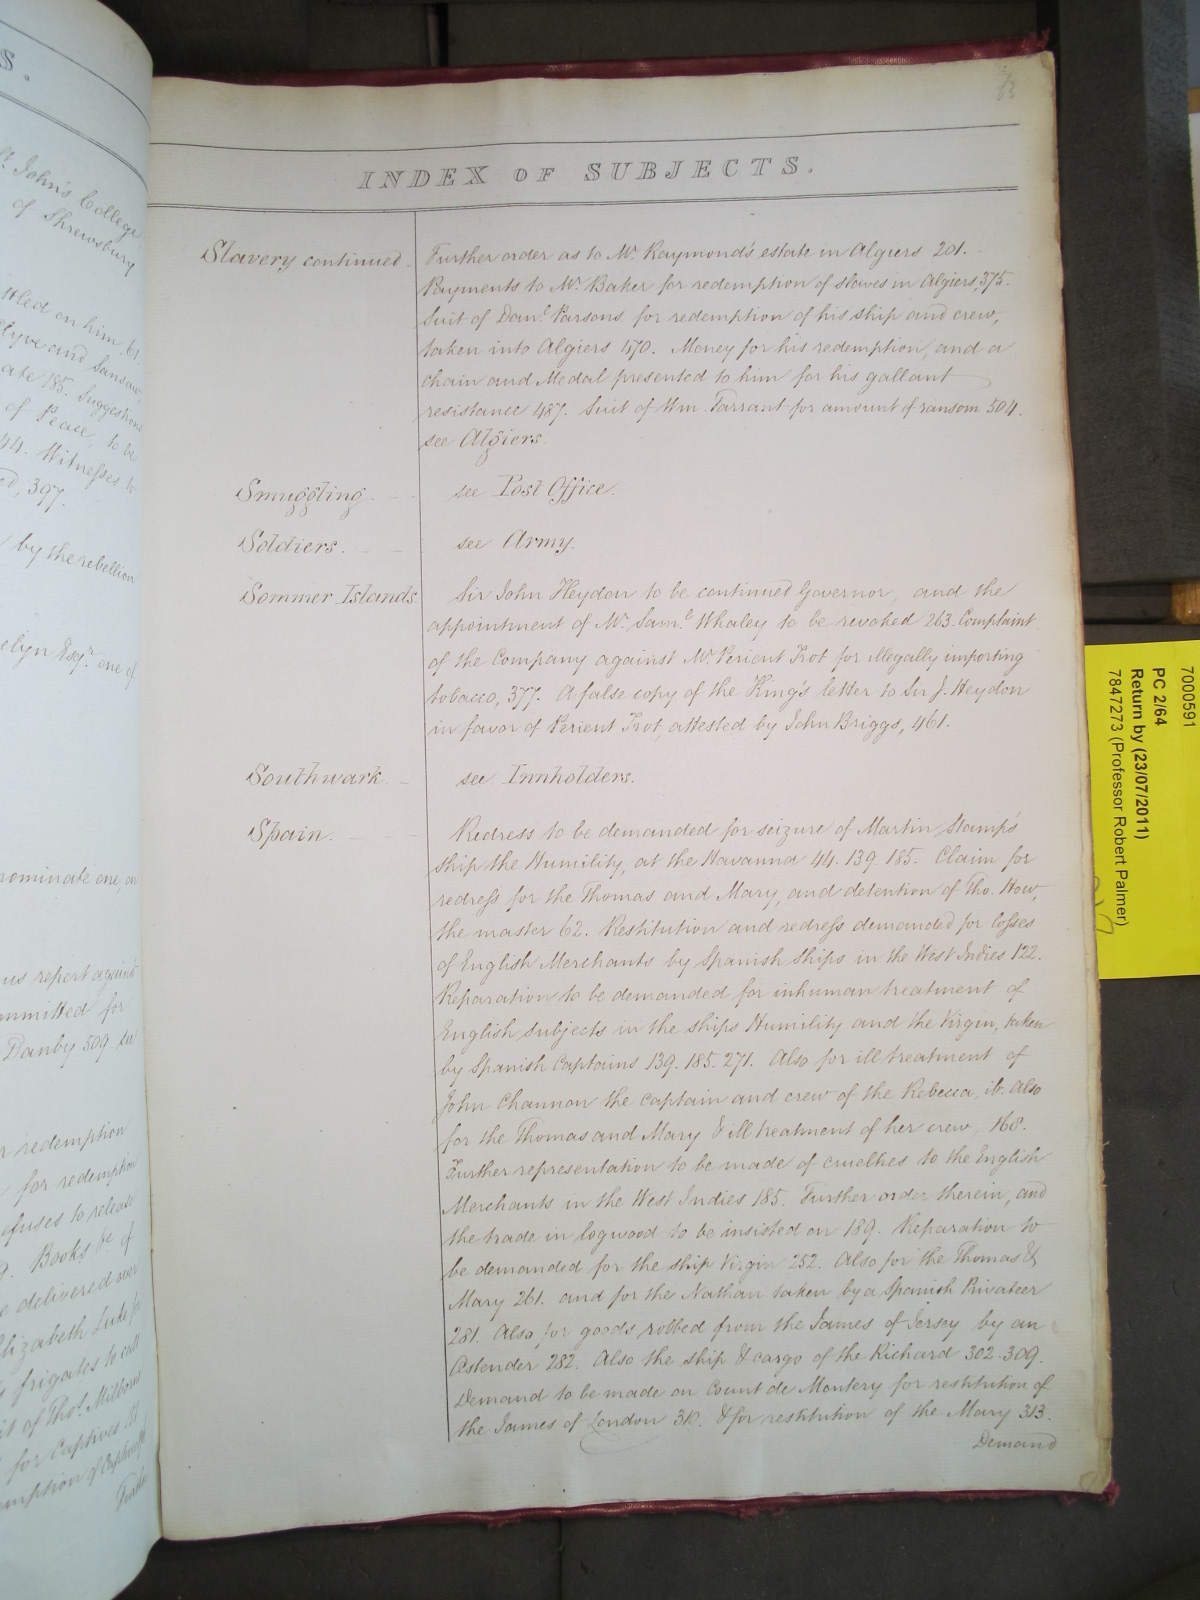 S.
St. John's College
of Shrewsbury
ttled on him, 61.
ate 185. Suggestions
of Peace, to be
44. Witnesses to
ed, 397.
by the rebellion
elyn Esqr. one of
nominate one, on
us report against
mmitted for
Danby 509.
r redemption
for redemption
efuses to release
9. Books &c. of
e delivered over
Elizabeth Luke for
frigates to call
it of Thos. Milborne
for Captives.
emption of Captives
Further
63
INDEX OF SUBJECTS.
Slavery continued. Further order as to Mr. Raymond's estate in Algiers 201.
Payments to Mr. Baker for redemption of slaves in Algiers, 375.
Suit of Danl. Parsons for redemption of his ship and crew,
taken into Algiers 470. Money for his redemption, and a
chain and Medal presented to him for his gallant
resistance 487. Suit of Wm. Tarrant for amount of ransom 504.
see Algiers.
Smuggling. see Post Office.
Soldiers. see Army.
Sommer Islands. Sir John Heydon to be continued Governor, and the
appointment of Mr. Saml. Whaley to be revoked 263. Complaint
of the Company against Mr. Perient Trot for illegally importing
tobacco, 377. A false copy of the King's letter to Sir J. Heydon
in favor of Perient Trot, attested by John Briggs, 461.
Southwark. see Innholders.
Spain. Redress to be demanded for seizure of Martin Stamp's
ship the Humility, at the Havanna 44. 139. 185. Claim for
redress for the Thomas and Mary, and detention of Tho. How,
the master 62. Restitution and redress demanded for losses
of English Merchants by Spanish Ships in the West Indies 122.
Reparation to be demanded for inhuman treatment of
English subjects in the ships Humility and the Virgin, taken
by Spanish Captains 139. 185. 271. Also for ill treatment of
John Channon the captain and crew of the Rebecca, ib. Also
for the Thomas and Mary & ill treatment of her crew, 168.
Further representation to be made of cruelties to the English
Merchants in the West Indies 185. Further order therein, and
the trade in logwood to be insisted on 189. Reparation to
be demanded for the ship Virgin 252. Also for the Thomas &
Mary 261. and for the Nathan taken by a Spanish Privateer
281. Also for goods robbed from the James of Jersey by an
Ostender 282. Also the ship & cargo of the Richard 302. 309.
Demand to be made on Count de Montery for restitution of
the James of London 310. & for restitution of the Mary 313.
Demand
7000591
PC 2/64
Return by (23/07/2011)
7847273 (Professor Robert Palmer)